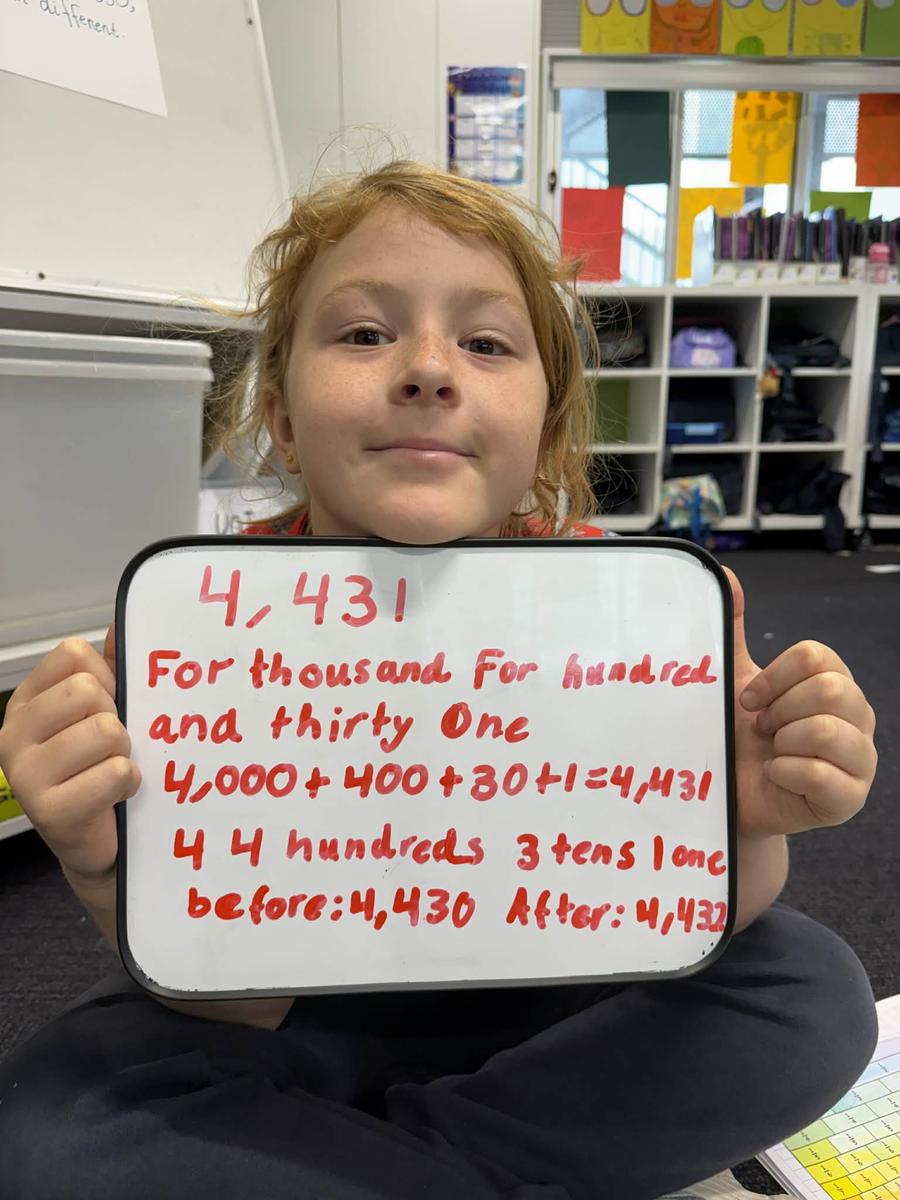 different.
4,431
For thousand For hundred
and thirty One
4,000+400+30+1=4,431
4 4 hundreds 3 tens 1 one
before:4,430 After: 4,432